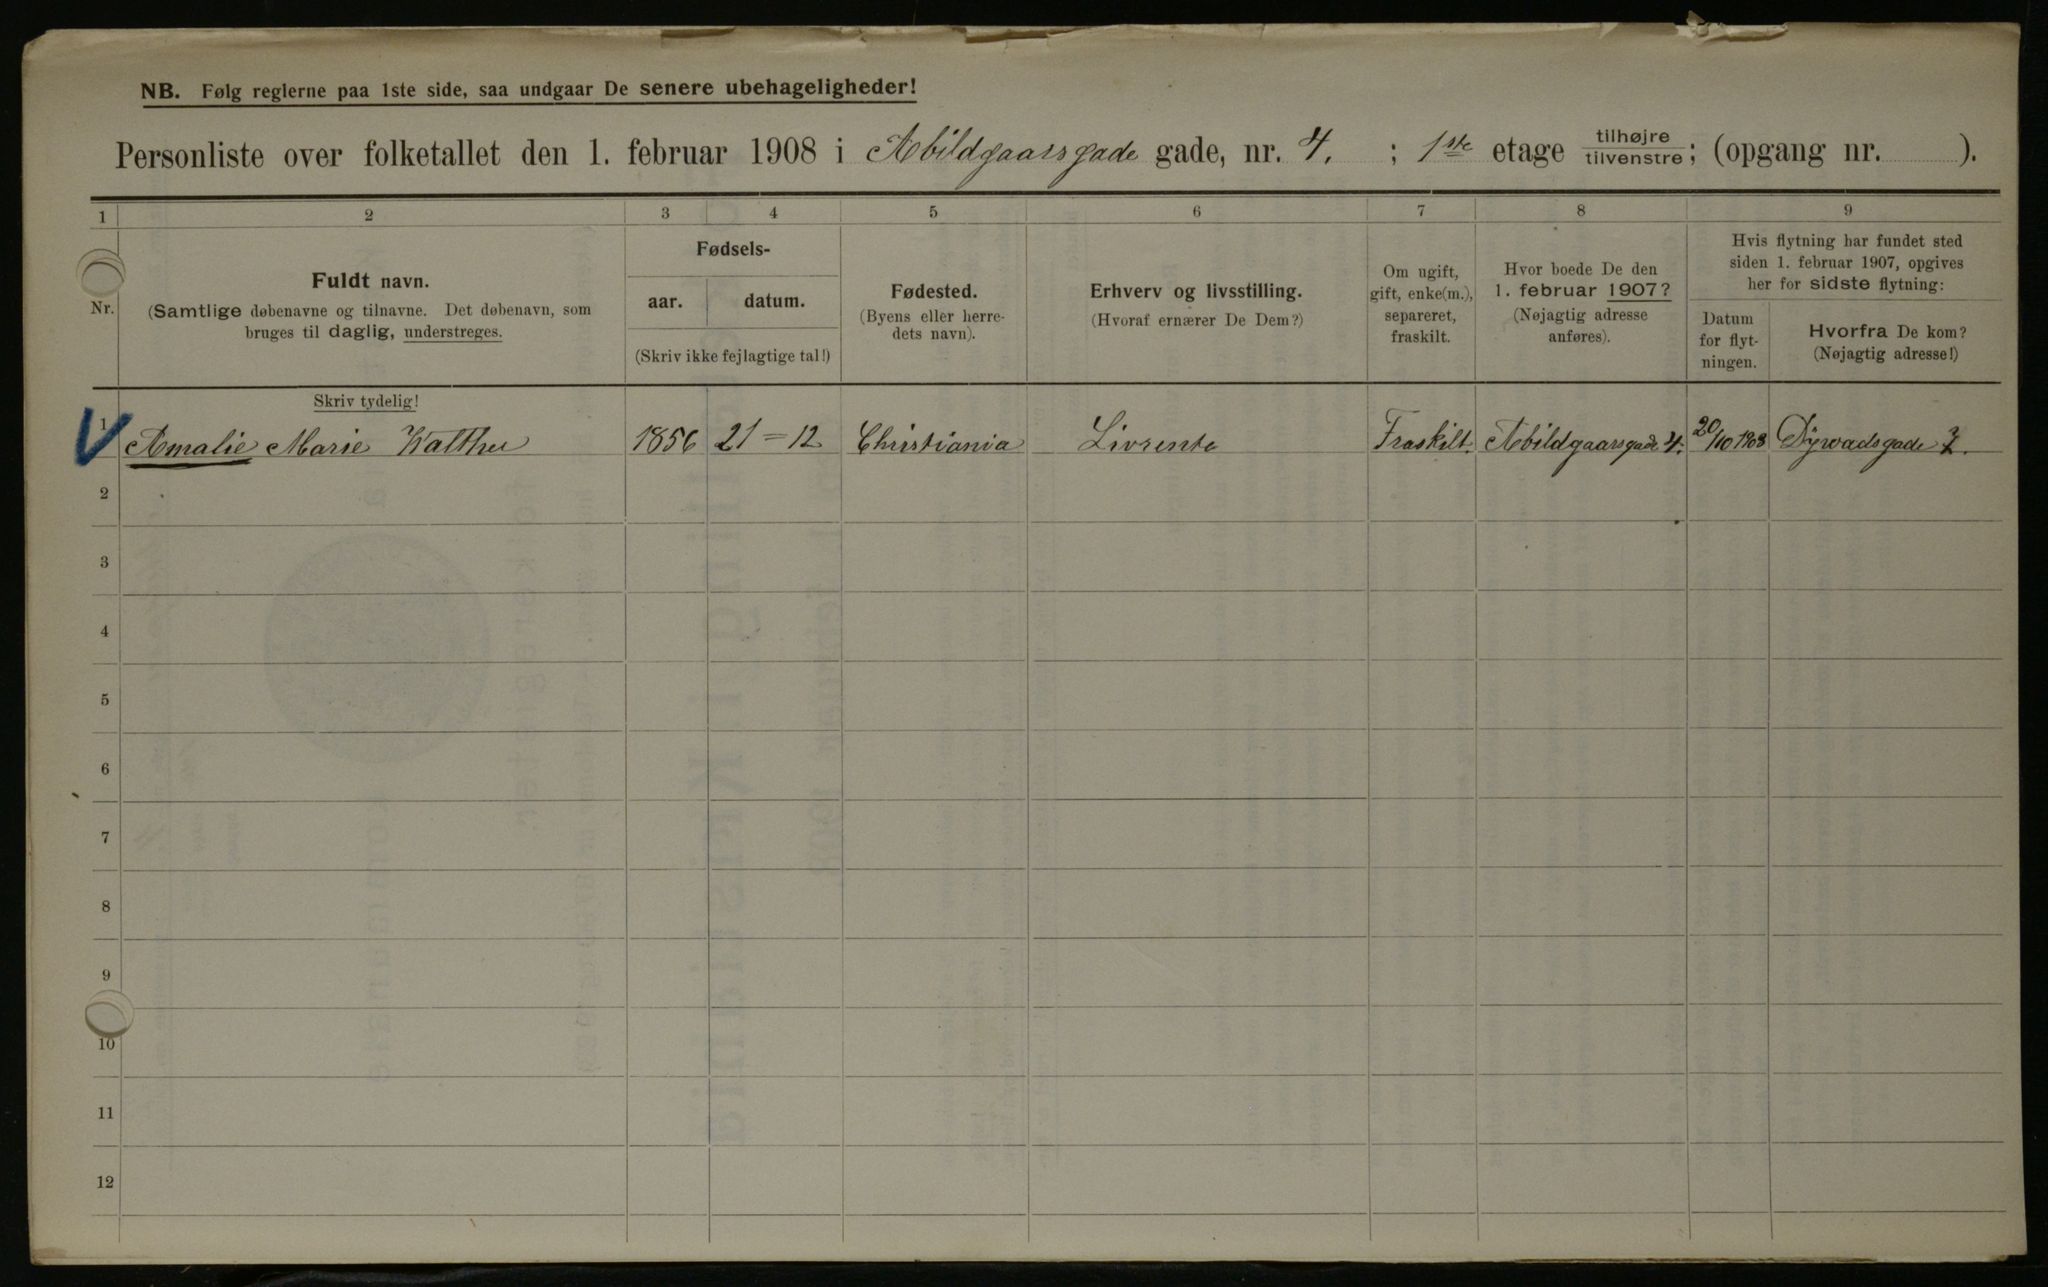 NB. Følg reglerne paa 1ste side, saa undgaar De senere ubehageligheder!
Personliste over folketallet den 1. februar 1908 i Abildgaarsgade gade, nr. 4. ; 1ste etage tilhøjre/tilvenstre; (opgang nr. ).
1 2 3 4 5 6 7 8 9
Nr.
Fuldt navn.
(Samtlige døbenavne og tilnavne. Det døbenavn, som
bruges til daglig, understreges.
Skriv tydelig!
Fødsels-
aar. datum.
(Skriv ikke fejlagtige tal!)
Fødested.
(Byens eller herre-
dets navn).
Erhverv og livsstilling.
(Hvoraf ernærer De Dem?)
Om ugift,
gift, enke(m.),
separeret,
fraskilt.
Hvor boede De den
1. februar 1907?
(Nøjagtig adresse
anføres).
Hvis flytning har fundet sted
siden 1. februar 1907, opgives
her for sidste flytning:
Datum
for flyt-
ningen.
Hvorfra De kom?
(Nøjagtig adresse!)
1 Amalie Marie Walther 1856 21=12 Christiania Livrente Fraskilt. Abildgaarsgade 4. 20/10 1903 Dÿvadsgade
2
3
4
5
6
7
8
9
10
11
12